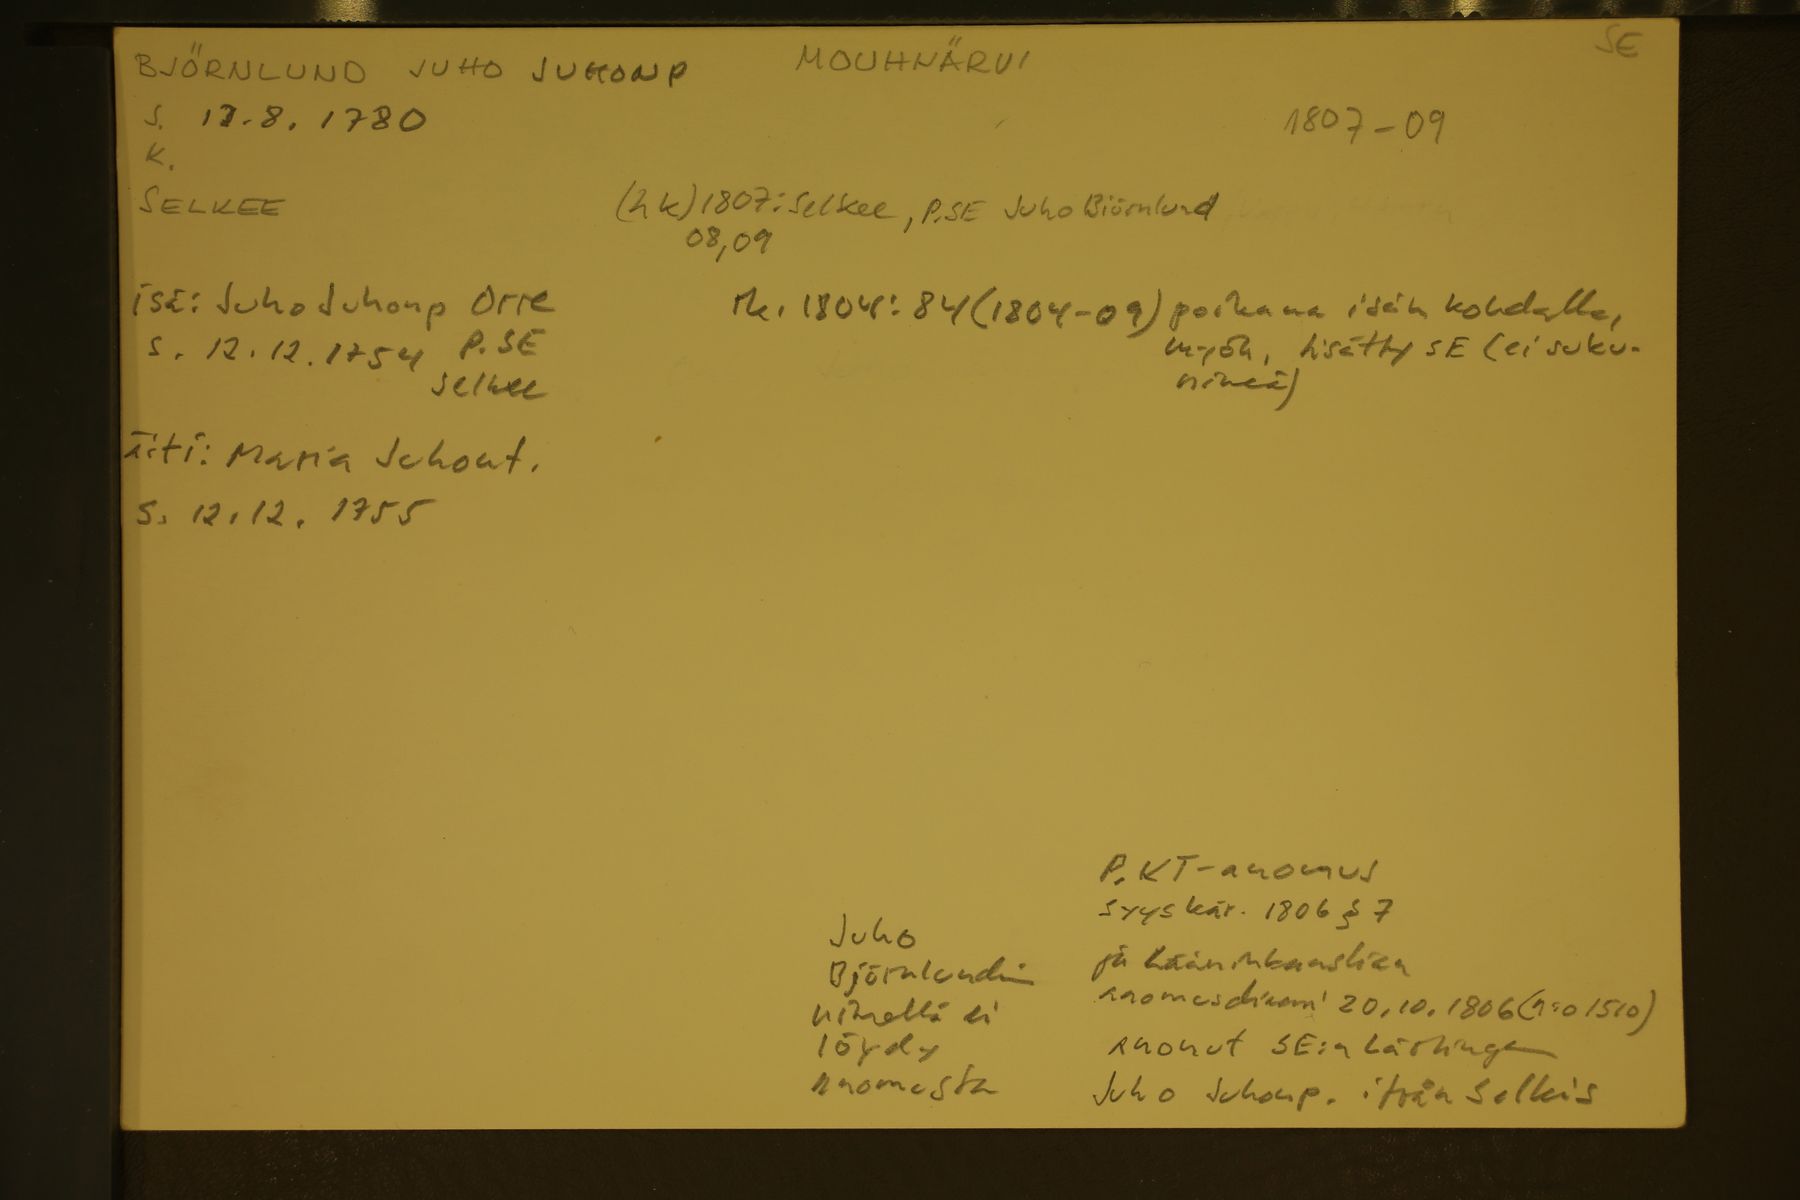 SE
BJÖRNLUND JUHO JUHONP MOUHNÄRVI
S. 17.8.1780 1807-09
K.
SELKEE (hk) 1807: Selkee, P.SE Juho Björnlund
08,09
isä: Juho Juhonp Orre rk. 1804: 84 (1804-09) poikana isän kohdalla,
s. 12.12.1754 P.SE myöh. lisätty SE (ei suku-
Selkee nimeä)
äiti: Maria Juhont.
s. 12.12.1755
P. KT-anomus
syyskär. 1806 § 7
ja lääninkanslian
anomusdiaari 20.10.1806 (n:o 1510)
anonut SE:n
Juho Juhonp. ifrån Selkis
Juho
Björnlundin
nimellä ei
löydy
anomusta